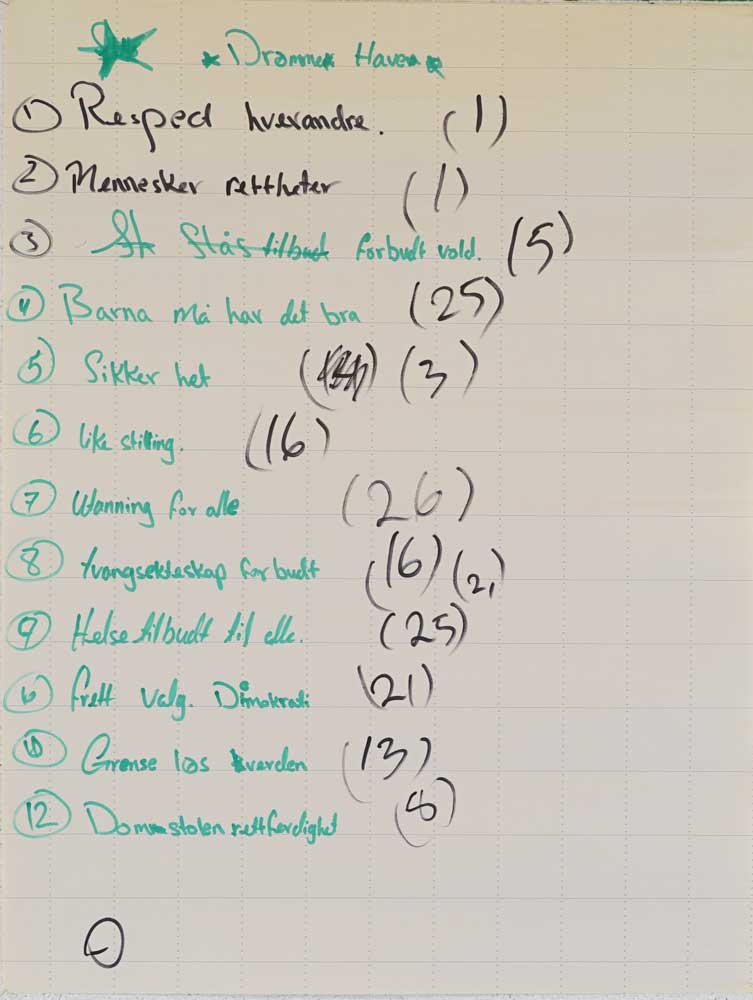 Drømme Haven
1 Respect hverandre. (1)
2 Mennesker rettheter (1)
3 St Slås tilbud forbudt vold. (5)
4 Barna må har det bra (25)
5 Sikker het (3)
6 like stilling. (16)
7 Wanning for alle (26)
8 tvangsekteskap forbudt (16) (2,)
9 Helse tilbudt til alle. (25)
10 frett valg. Dimokrati (21)
Grense løs verden (13)
12 Dommstolen rettferdighet (8)